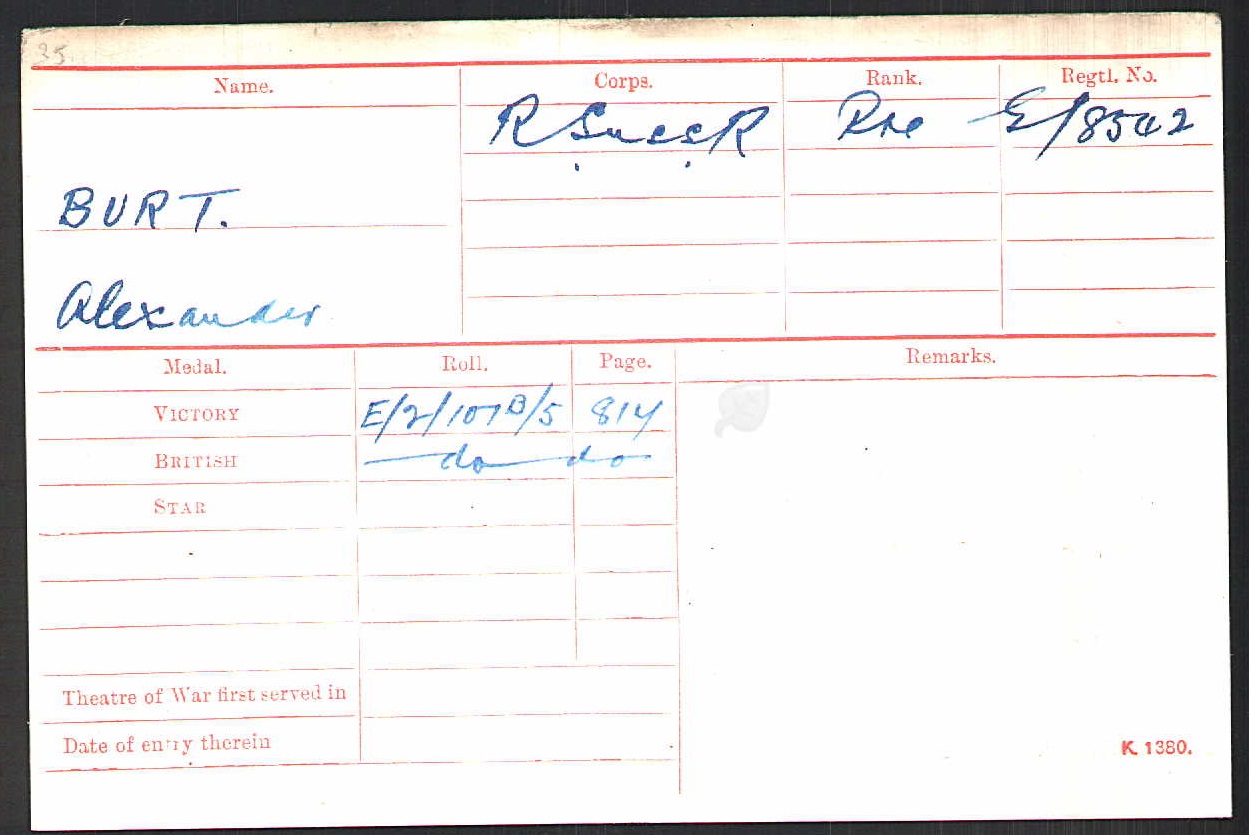 35.
Name. Corps. Rank. Regtl. No.
R Suss R Pte G/8542
BURT.
Alexander
Medal. Roll. Page. Remarks.
VICTORY E/2/107B/5 814
BRITISH do do
STAR
Theatre of War first served in
Date of entry therein
K. 1380.